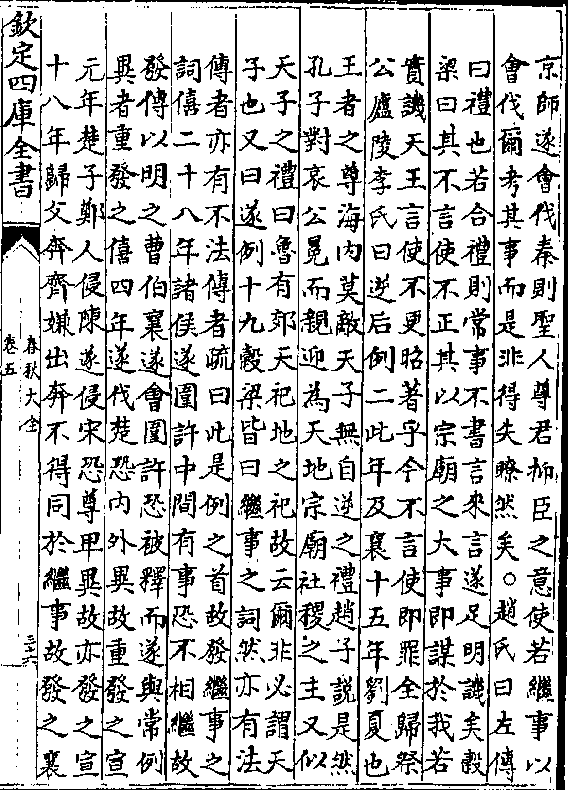 京師遂會伐秦則聖人尊君抑臣之意使若繼事以
會伐爾考其事而是非得失瞭然矣○趙氏曰左傳
曰禮也若合禮則常事不書言來言遂足明譏矣穀
梁曰其不言使不正其以宗廟之大事即謀於我若
實譏天王言使不更昭著乎今不言使即罪全歸祭
公廬陵李氏曰逆后例二此年及襄十五年劉夏也
王者之尊海内莫敵天子無自逆之禮趙子説是然
孔子對哀公冕而親迎為天地宗廟社稷之主又似
天子之禮曰魯有郊天祀地之祀故云爾非必謂天
子也又曰遂例十九穀梁皆曰繼事之詞然亦有法
傳者亦有不法傳者疏曰此是例之首故發繼事之
詞僖二十八年諸侯遂圍許中間有事恐不相繼故
發傳以明之曹伯襄遂會圍許恐被釋而遂與常例
異者重發之僖四年遂伐楚恐内外異故重發之宣
元年楚子鄭人侵陳遂侵宋恐尊卑異故亦發之宣
十八年歸父奔齊嫌出奔不得同於繼事故發之襄
欽定四庫全書
春秋大全
卷五
三六